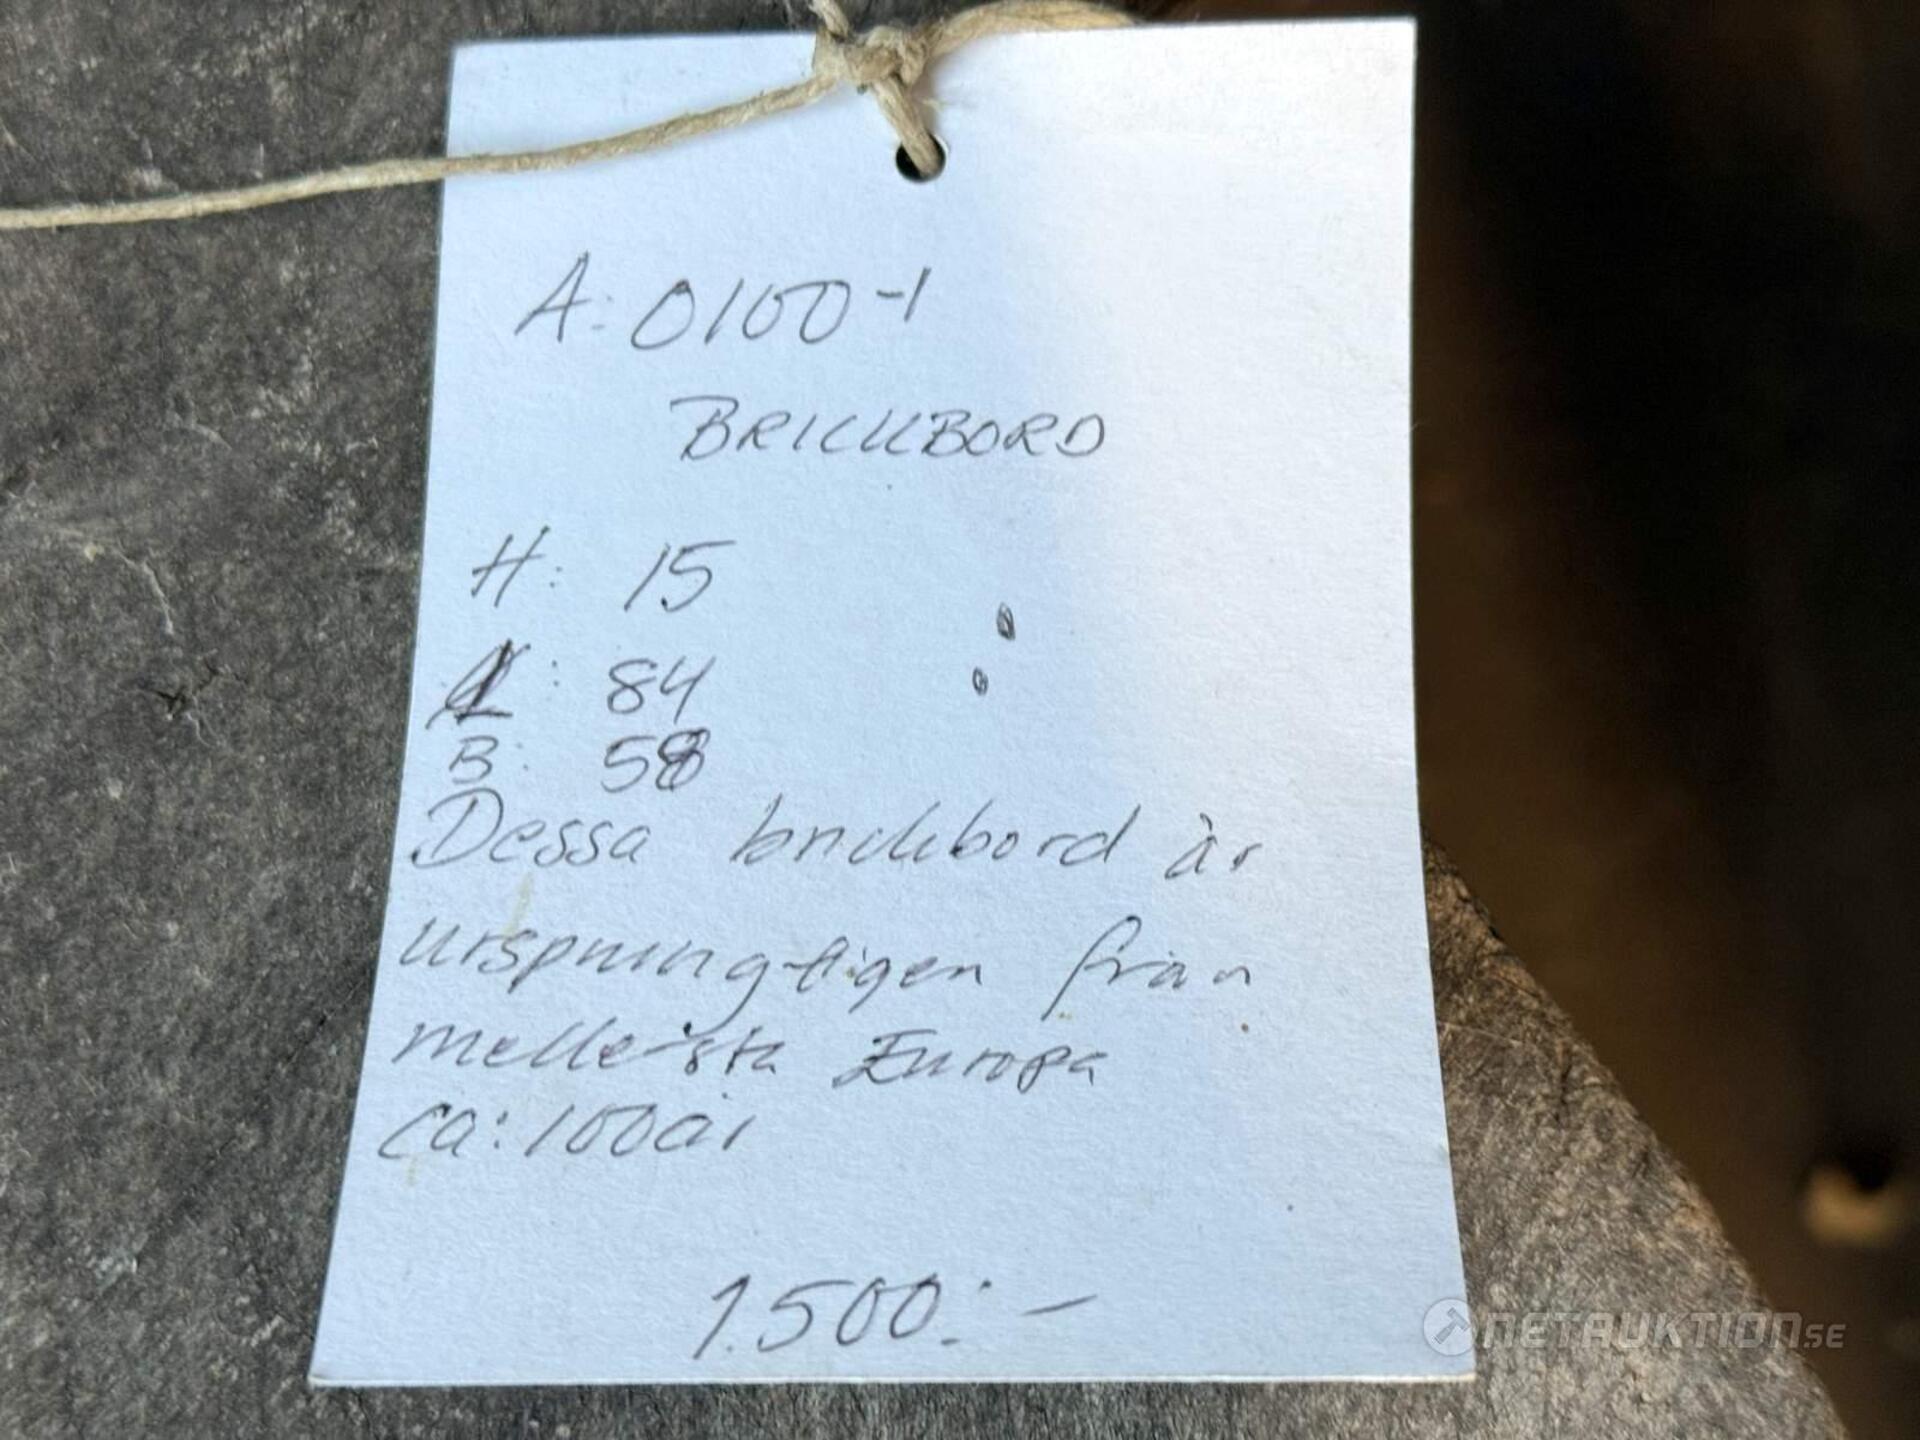 A: 0100-1
BRICKBORD
H: 15
L: 84
B: 58
Dessa brickbord är
ursprungligen från
mellersta Europa
ca: 100 år
1.500:-
NETAUKTION.SE